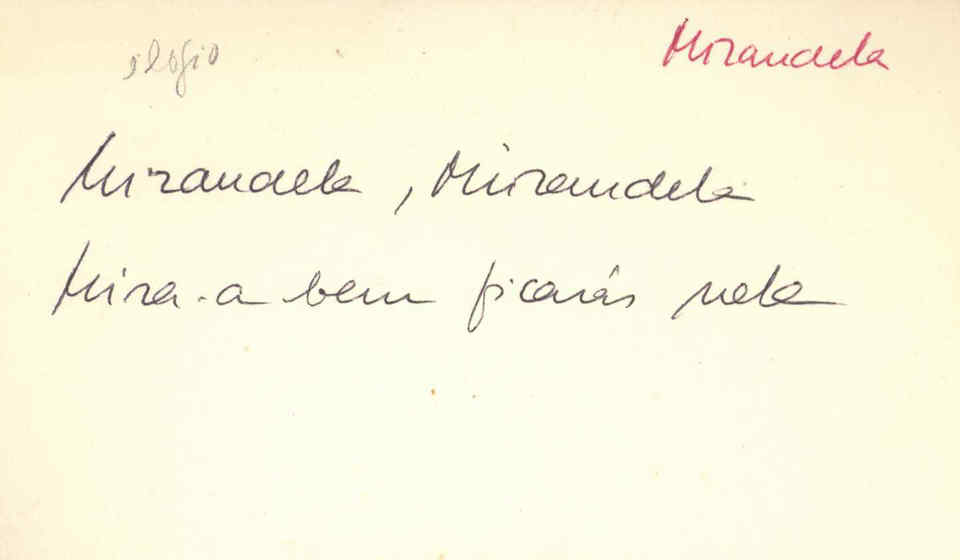 elogio
Mirandela
Mirandela, Mirandela
Mira-a bem ficarás nela